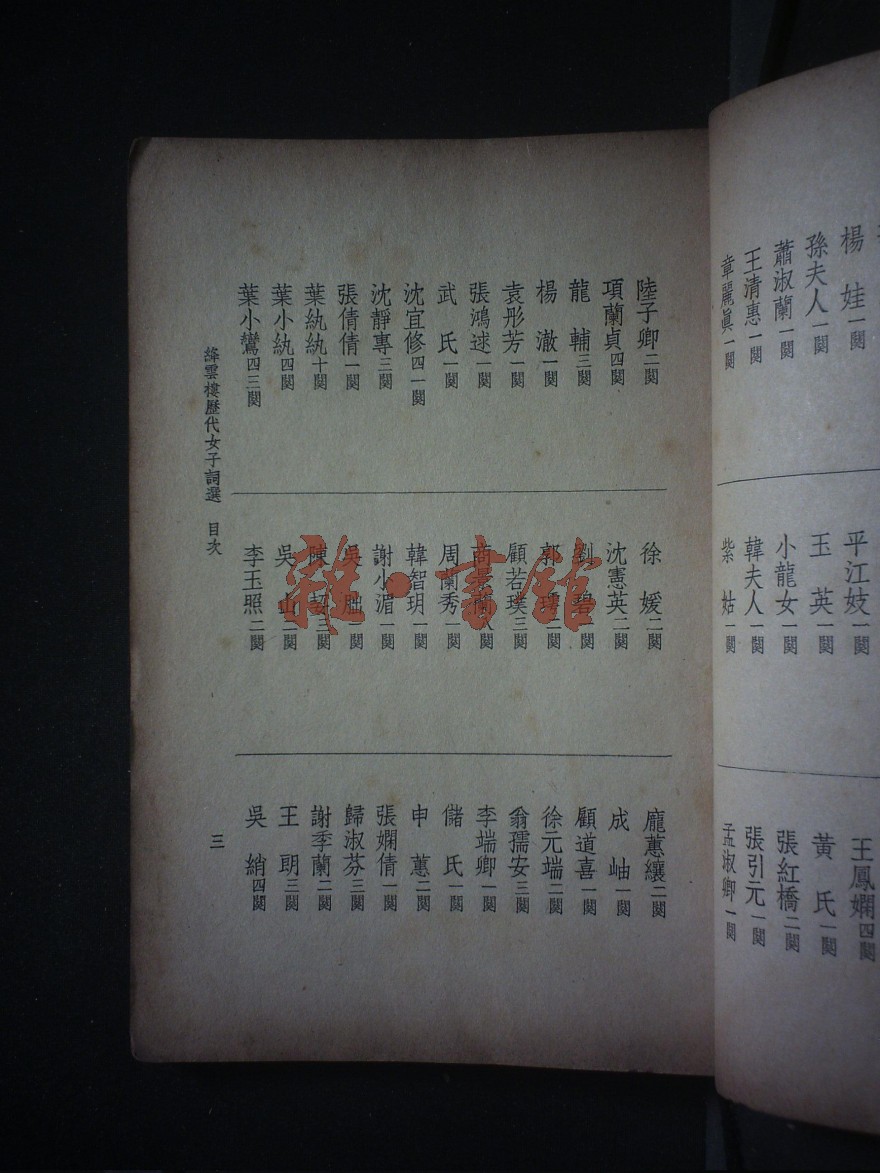 楊 娃一闋
孫夫人一闋
蕭淑蘭一闋
王清惠一闋
章麗眞一闋
平江妓一闋
玉 英一闋
小龍女一闋
韓夫人一闋
紫 姑一闋
王鳳嫻四闋
黃 氏一闋
張紅橋二闋
張引元一闋
孟淑卿一闋
陸子卿二闋
項蘭貞四闋
龍 輔三闋
楊 澈一闋
袁彤芳一闋
張鴻逑一闋
武 氏一闋
沈宜修四一闋
沈靜專三闋
張倩倩一闋
葉紈紈十闋
葉小紈四闋
葉小鸞四三闋
徐 媛二闋
沈憲英二闋
劉碧一闋
郭 二闋
顧若璞三闋
商景蘭八闋
周蘭秀一闋
韓智玥一闋
謝小湄一闋
吳 朏一闋
陳 三闋
吳 山二闋
李玉照二闋
龐蕙纕二闋
成 岫一闋
顧道喜一闋
徐元端二闋
翁孺安三闋
李端卿一闋
儲 氏一闋
申 蕙二闋
張嫻倩一闋
歸淑芬三闋
謝季蘭二闋
王 朗三闋
吳 綃四闋
絳雲樓歷代女子詞選 目次
三
雜·書館